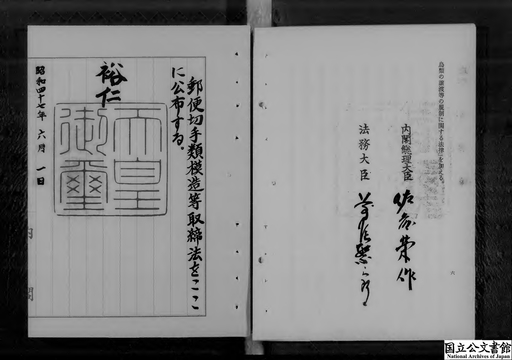 島類の譲渡等の規制に関する法律」を加える。
内閣総理大臣 佐藤榮作
法務大臣
郵便切手類模造等取締法をここ
に公布する。
裕仁
天皇
御璽
昭和四十七年 六月 一日
内閣
国立公文書館
National Archives of Japan